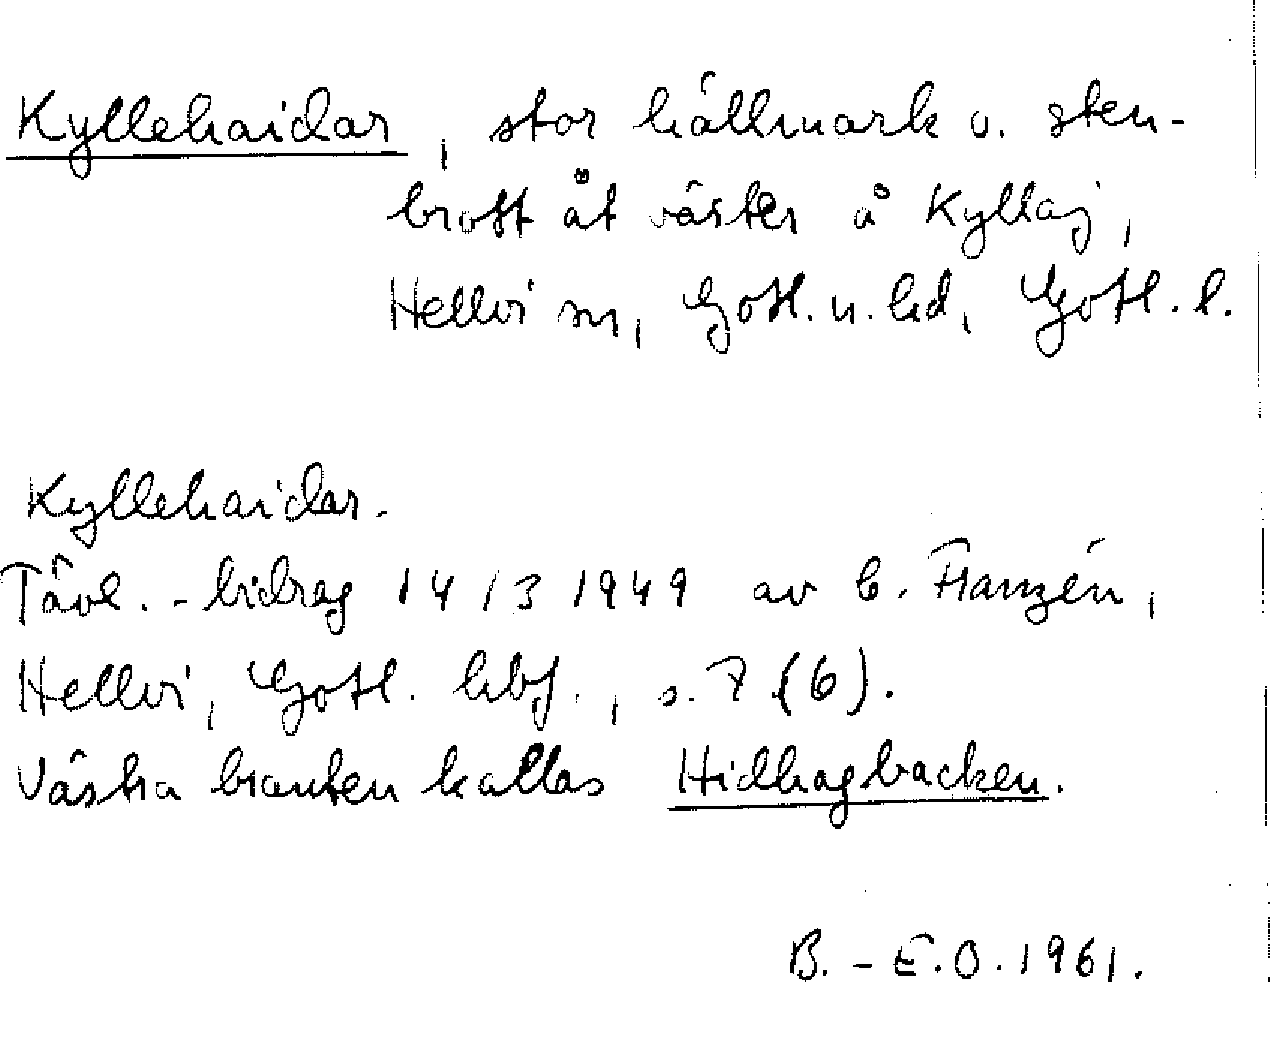 Kyllehaidar, stor hällmark o. sten-
brott åt väster å Kyllaj,
Hellvi sn, Gotl. n. hd, Gotl. l.
Kyllehaidar.
Tävl.-bidrag 14/3 1949 av C. Franzén,
Hellvi, Gotl. hbf., s. 7 (6).
Västra branten kallas Hidhagbacken.
B.-E.O. 1961.